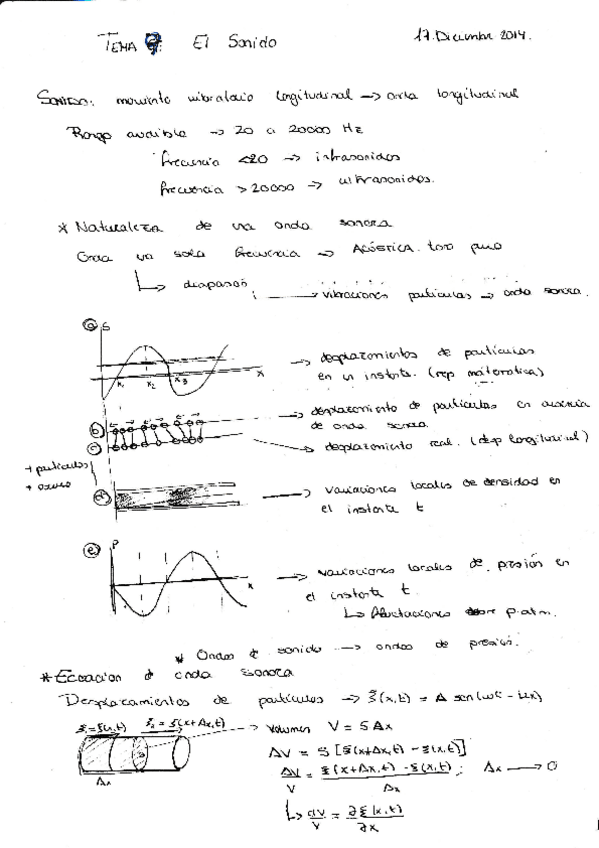 TEMA 7. El Sonido 17. Diciembre 2014.
SONIDO: movimiento vibratorio longitudinal → onda longitudinal
Rango audible → 20 a 20000 Hz
frecuencia <20 → infrasonidos
frecuencia > 20000 → ultrasonidos.
* Naturaleza de una onda sonora
Onda un sola frecuencia → ACÚSTICA. tono puro
↳ diapasón ; → vibraciones partículas → onda sonora.
a S
x₁ x₂ x₃ x
→ desplazamientos de partículas
en un instante. (rep matemática)
b → desplazamiento de partículas en ausencia
de onda sonora
c → desplazamiento real. (desp longitudinal)
+ partículas
+ oscuro
d → variaciones locales de densidad en
el instante t
e P
x
→ variaciones locales de presión en
el instante t.
↳ fluctuaciones sobre p.atm.
* Ondas de sonido → ondas de presión.
* Ecuación de onda sonora
Desplazamientos de partículas → ξ(x,t) = A sen(ωt - kx)
ξ₁=ξ(x,t) ξ₂ = ξ(x+Δx,t) → volumen V = SΔx
Δx
ΔV = S [ξ(x+Δx,t) - ξ(x,t)]
ΔV/V = ξ(x+Δx,t) - ξ(x,t)/Δx ; Δx → 0
↳ dV/V = ∂ξ(x,t)/∂x